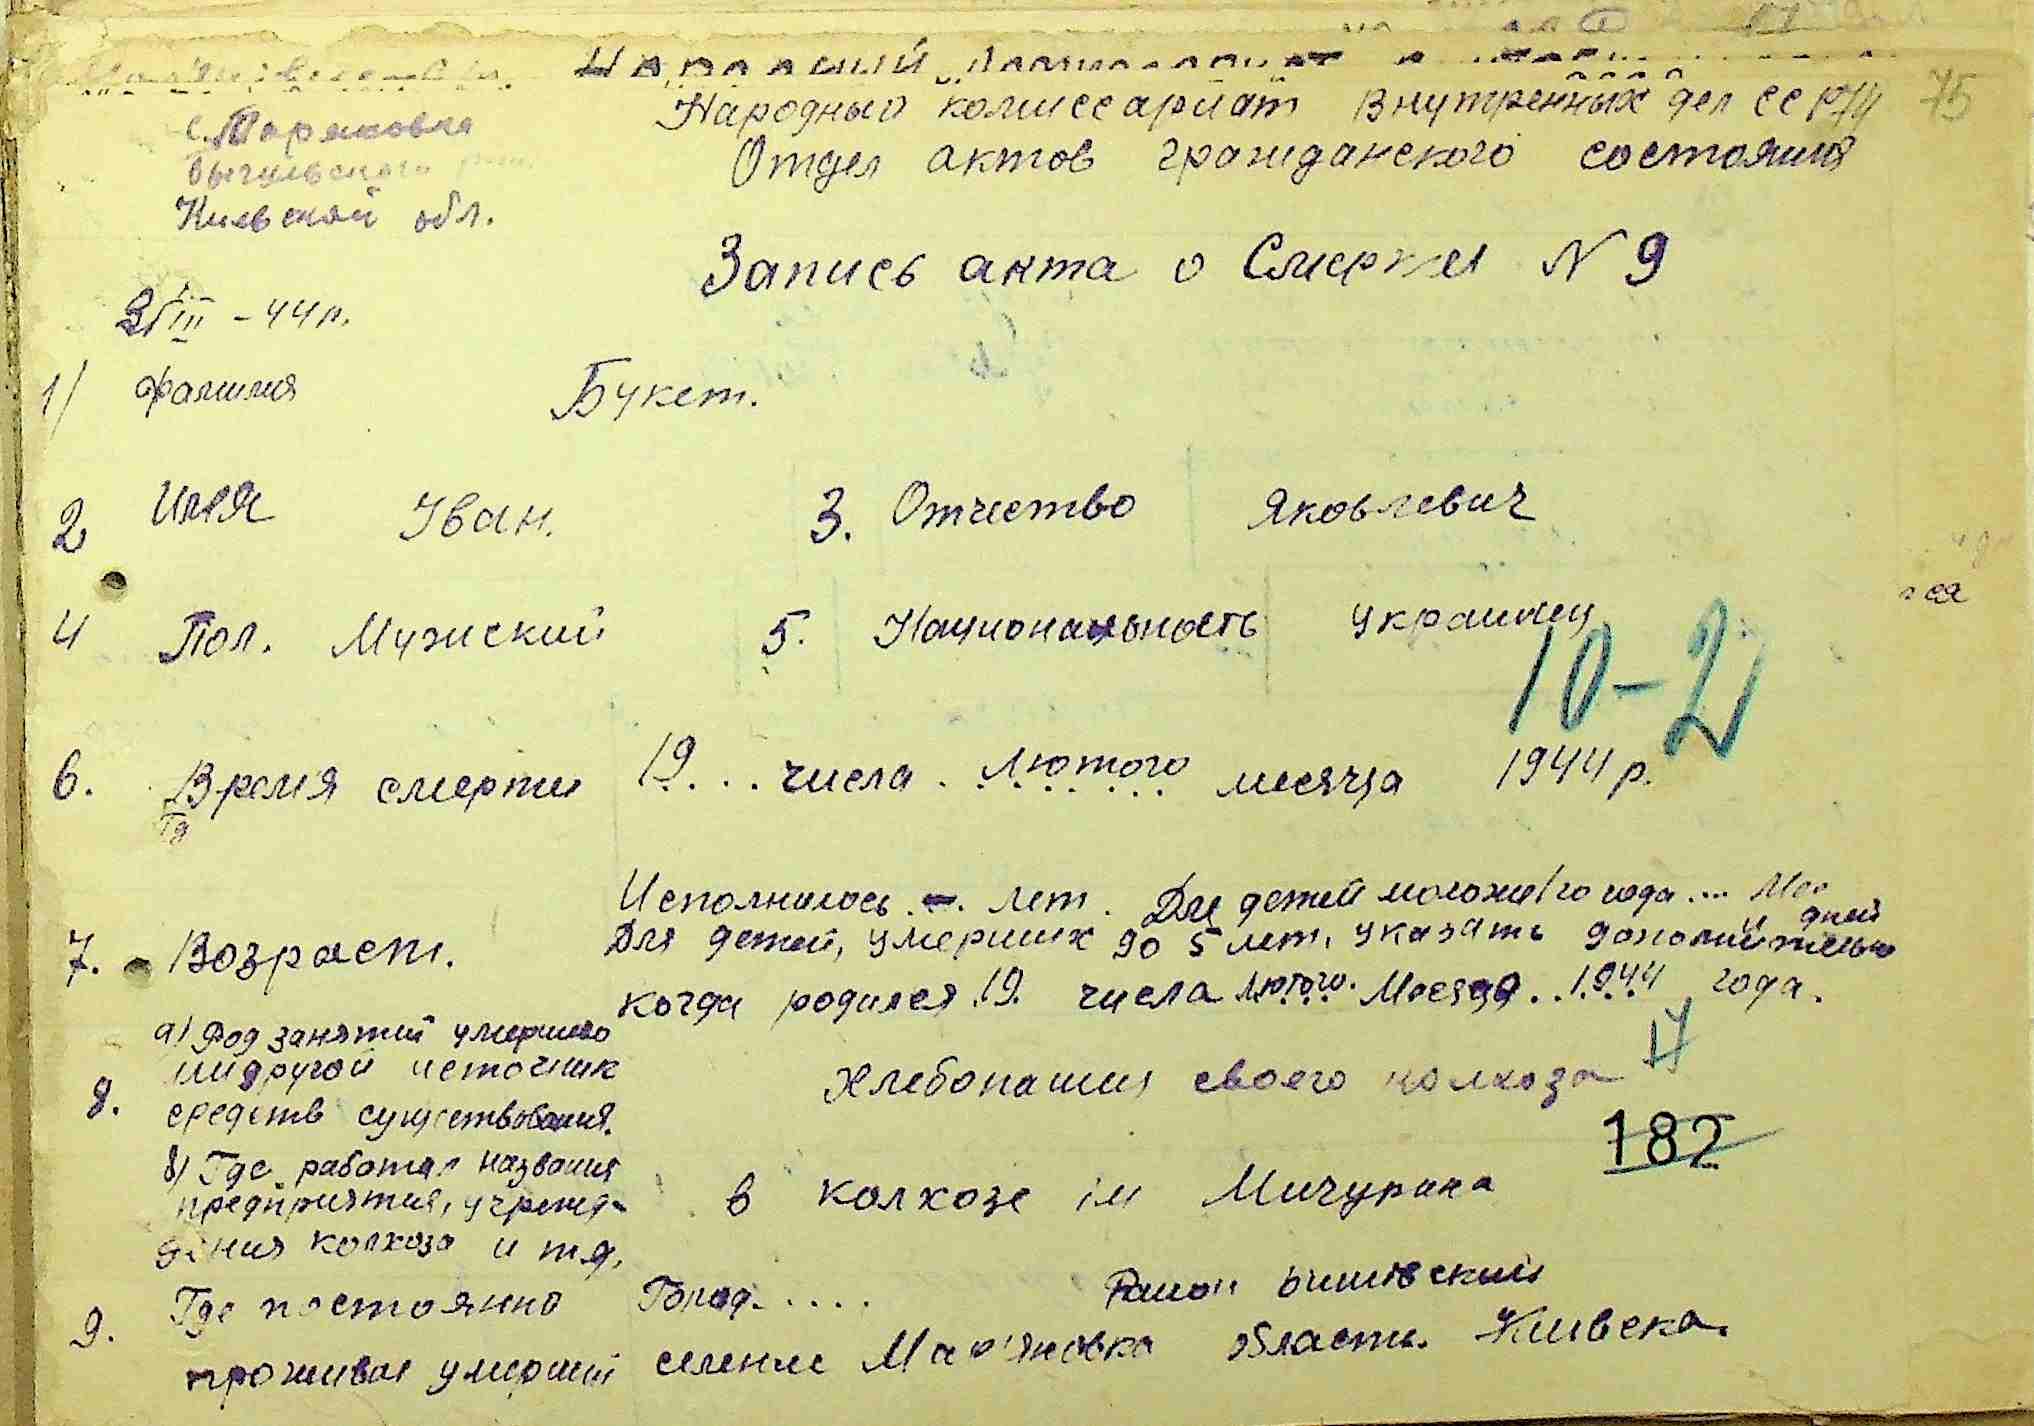 75
Народный комиссариат Внутренных дел СССР
Отдел актов гражданского состояния
Киевской обл.
Запись акта о Смерти N 9
III -44 р.
1) Фамилия Букет.
2 Имя Іван. 3. Отчество Яковлевич
4 Пол. Мужский 5. Национальность украинец
10-2
6. Время смерти 19... числа. лютого месяца 1944 р.
Исполнилось - лет. Для детей моложе 1 го года ... Мес
дней
7. Возраст. Для детей, умерших до 5 лет, указать дополнительно
когда родился 19. числа лютого. Месяца.. 1944 года.
17
а) Род занятий умершего
или другой источник
8. средств существования. Хлебопашец своего колхоза
182
б) Где работал названия
предприятия, учреж-
дения колхоза и т д. в колхозе ім Мичурина
9. Где постоянно Город..... Район
проживал умерший селение Мар'яновка область. Киивска.